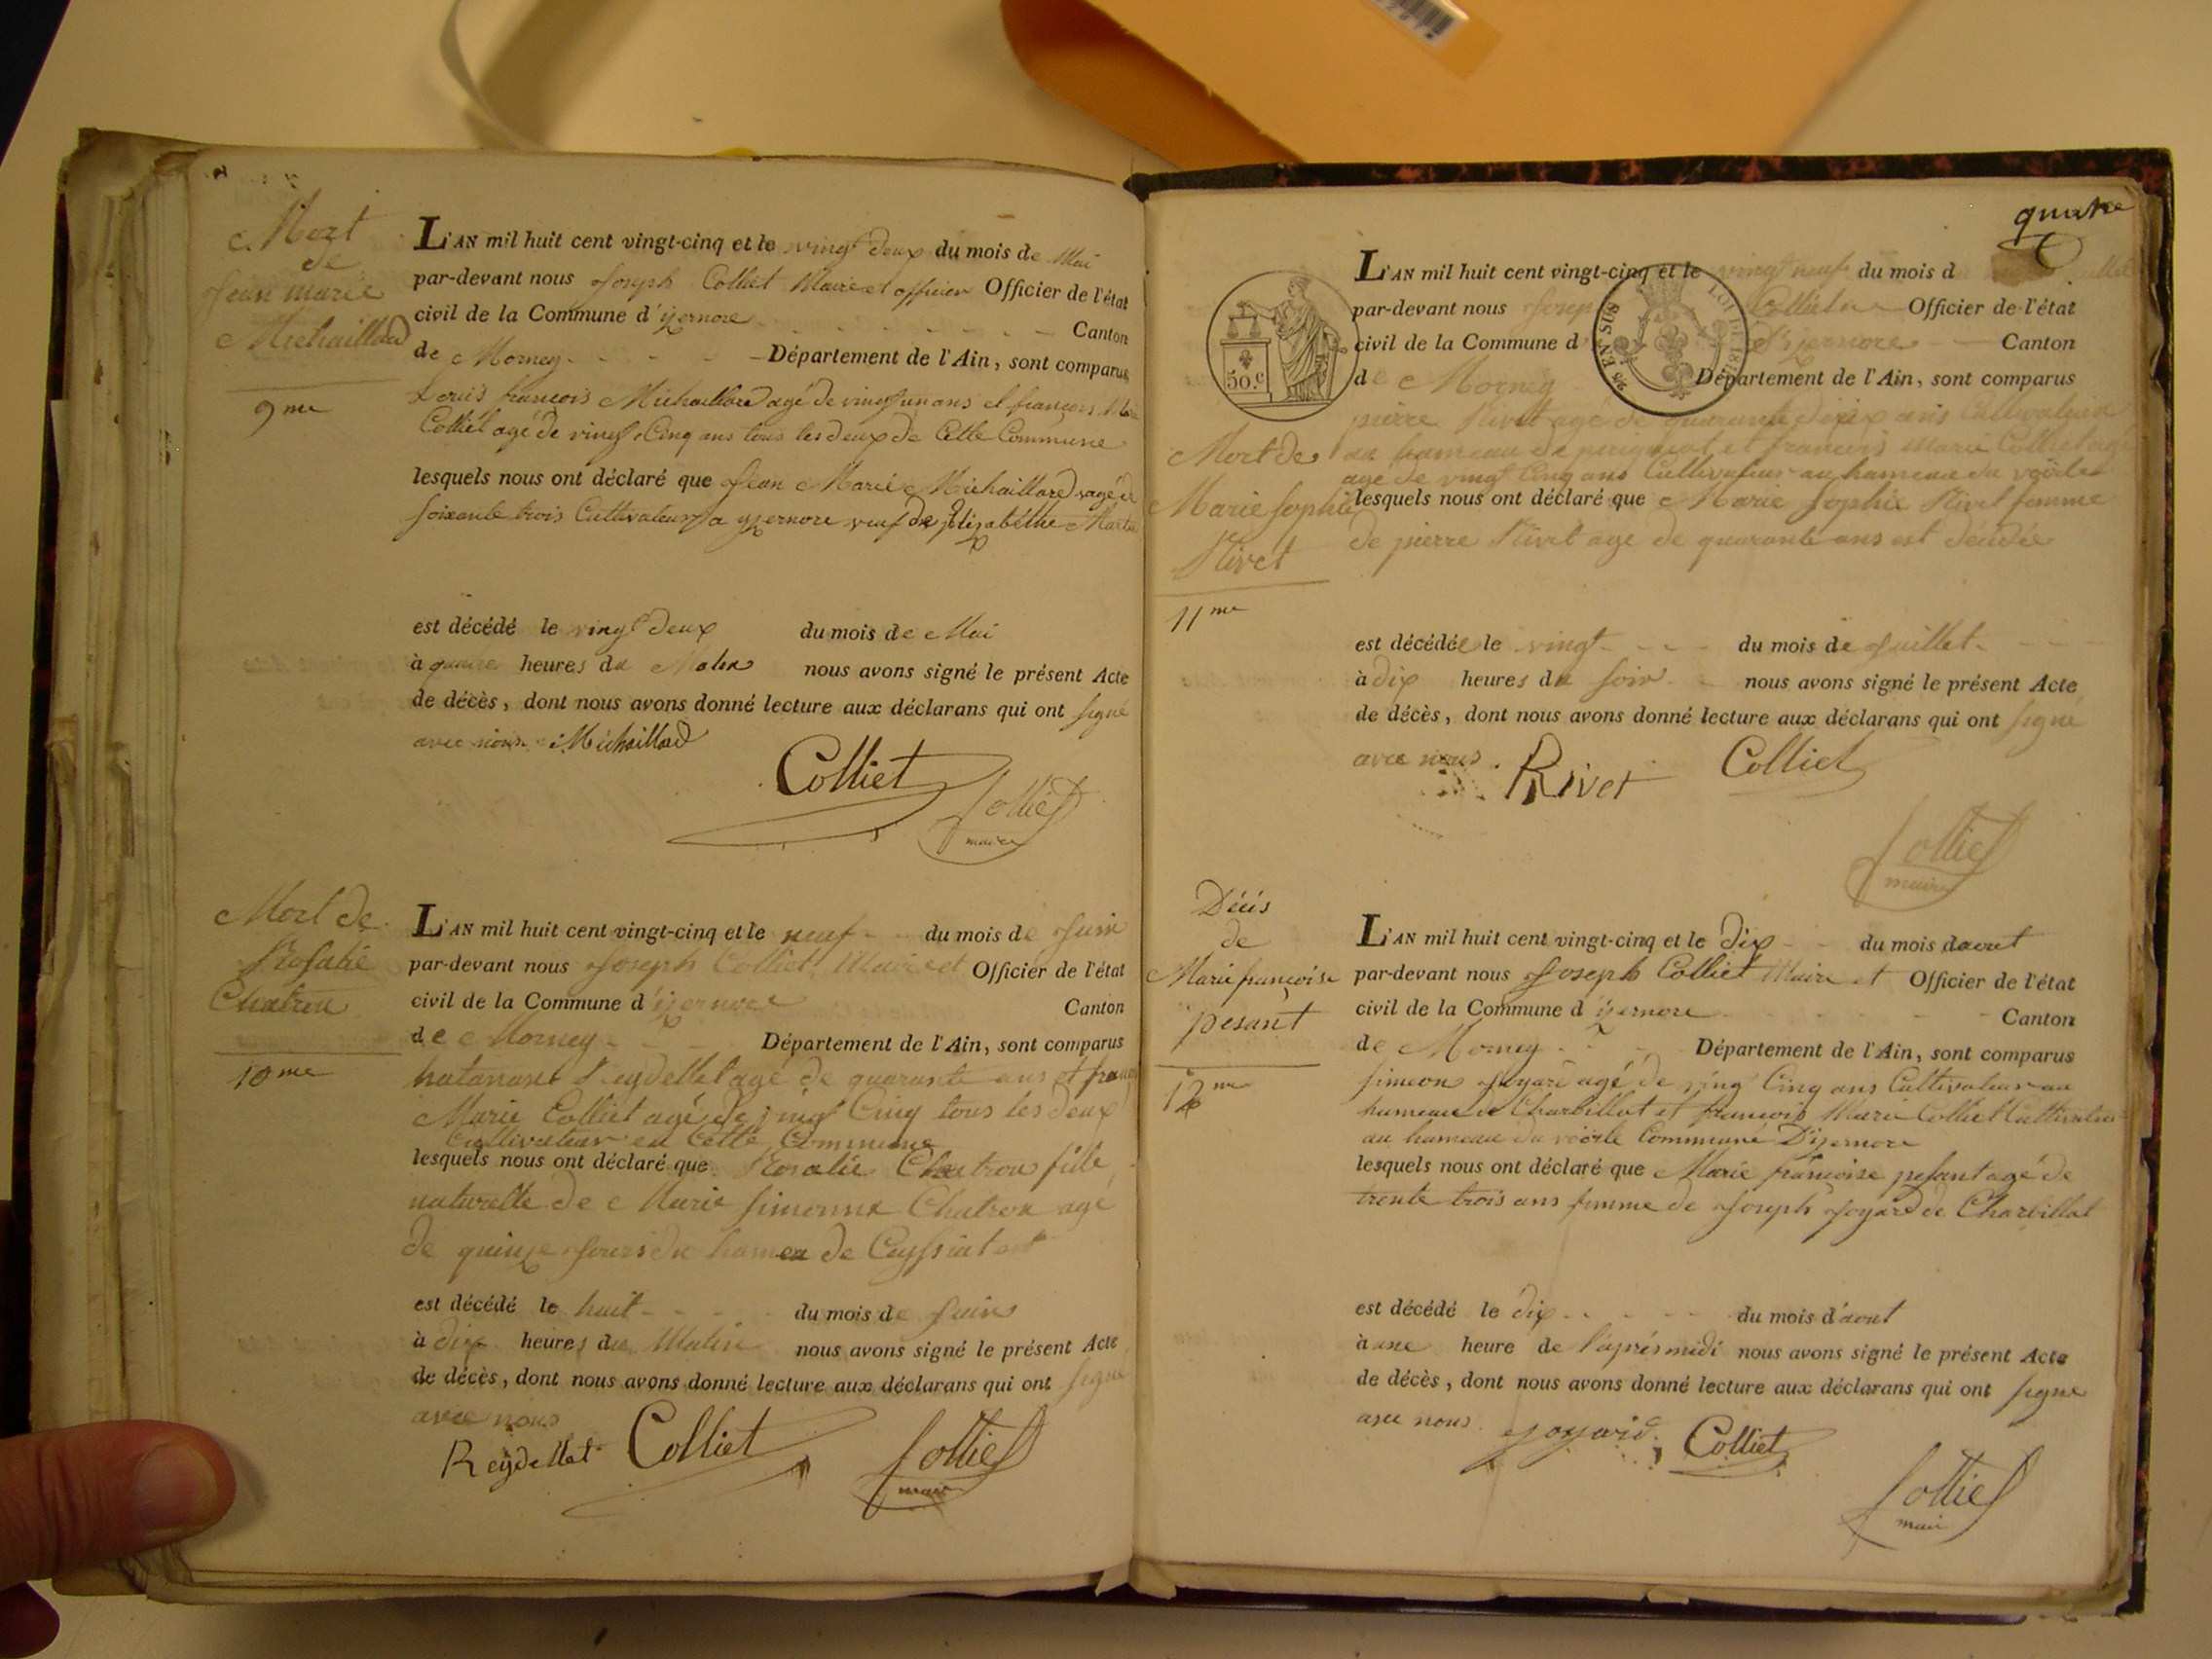 Mort
de
Jean marie
Michaillard
9me
L'AN mil huit cent vingt-cinq et le vingt deux du mois de Mai
par-devant nous Joseph Colliet Maire et officier Officier de l'état
civil de la Commune d'izernore Canton
de Mornay Département de l'Ain, sont comparus
Louis francois Michaillard agé de vingt un ans et françois Marie
Colliet agé de vingt Cinq ans tous les deux de Cette Commune
lesquels nous ont déclaré que Jean Marie Michaillard agé de
soixante trois Cultivateur a yzernore veuf de Elizabéthe
est décédé le vingt deux du mois de Mai
à quatre heures du Matin nous avons signé le présent Acte
de décès, dont nous avons donné lecture aux déclarans qui ont signé
avec nous Michaillard
Colliet
Colliet
maire
Mort de
Rosalie
Chatron
10me
L'AN mil huit cent vingt-cinq et le neuf du mois de Juin
par-devant nous Joseph Colliet Maire et Officier de l'état
civil de la Commune d'izernore Canton
de Mornay Département de l'Ain, sont comparus
Reydellet agé de quarante ans et françois
Marie Colliet agé de vingt Cinq tous les deux
Cultivateur en Cette Commune
lesquels nous ont déclaré que Rosalie Chatron fille
naturelle de Marie simonne Chatron agé
de quinze Jours du hameau de Ceyssiat est
est décédé le huit du mois de Juin
à dix heures du Matin nous avons signé le présent Acte
de décès, dont nous avons donné lecture aux déclarans qui ont signé
avec nous
Reydellet Colliet Colliet
maire
quatre
L'AN mil huit cent vingt-cinq et le vingt neuf du mois d Juillet
par-devant nous Joseph Colliet Officier de l'état
civil de la Commune d D'izernore Canton
de Mornay Département de l'Ain, sont comparus
50.c
LOI DE
EN SUS
pierre Rivet agé de quarante deux ans Cultivateur
au hameau de perignat et francois Marie Colliet agé
agé de vingt Cinq ans Cultivateur au hameau du voërle
Mort de
Marie Sophie
Rivet
11me
lesquels nous ont déclaré que Marie Sophie Rivet femme
de pierre Rivet agé de quarante ans est décédée
est décédée le vingt du mois de Juillet
à dix heures du soir nous avons signé le présent Acte
de décès, dont nous avons donné lecture aux déclarans qui ont signé
avec nous Rivet Colliet
Colliet
maire
Décés
de
Marie françoise
pesant
12me
L'AN mil huit cent vingt-cinq et le dix du mois daout
par-devant nous Joseph Colliet Maire et Officier de l'état
civil de la Commune d'izernore Canton
de Mornay Département de l'Ain, sont comparus
simeon Joyard agé de vingt Cinq ans Cultivateur au
hameau de Charbillat et françois Marie Colliet Cultivateur
au hameau du voërle Commune D'izernore
lesquels nous ont déclaré que Marie françoise pesant agé de
trente trois ans femme de Joseph Joyard de Charbillat
est décédé le dix du mois d'aout
à une heure de l'aprés midi nous avons signé le présent Acte
de décès, dont nous avons donné lecture aux déclarans qui ont signé
avec nous Joyard Colliet
Colliet
mair